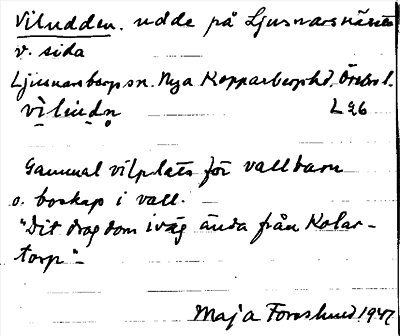 Viludden. udde på Ljusnarsnäsets
v. sida
Ljusnarsberg sn. Nya Kopparbergs hd. Örebro l.
L 96
Gammal vilplats för vallbarn
o. boskap i vall.
"Dit drog dom iväg ända från Kolar-
torp"-
Maja Forslund 1947